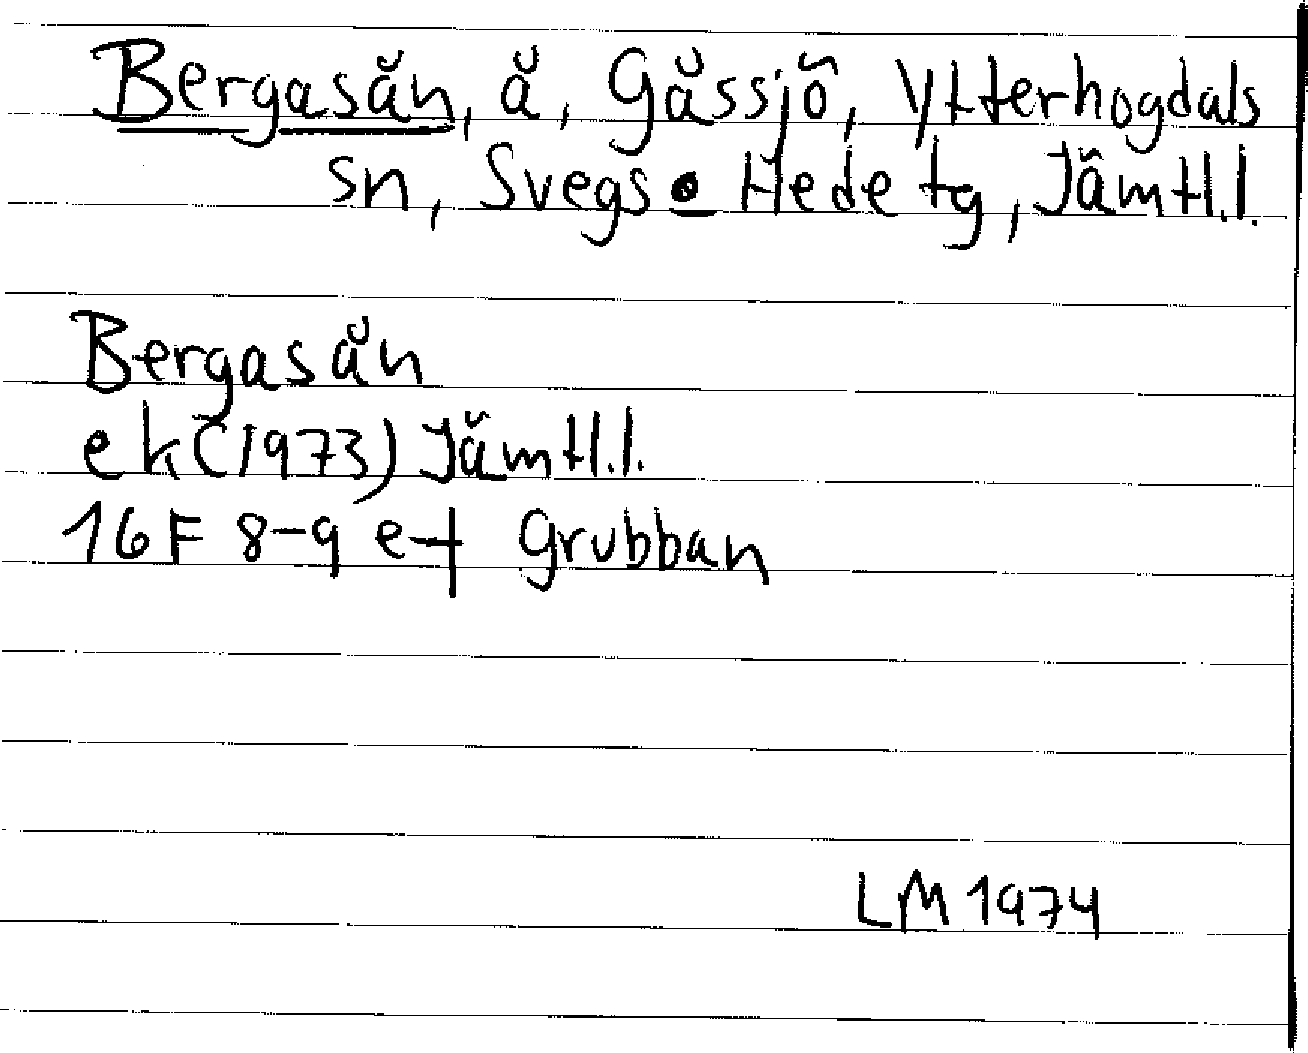 Bergasån, å, Gåssjö, Ytterhogdals
sn, Svegs Hede tg, Jämtl.l.
Bergasån
ek (1973) Jämtl.l.
16F 8-9 e-f Grubban
LM 1974